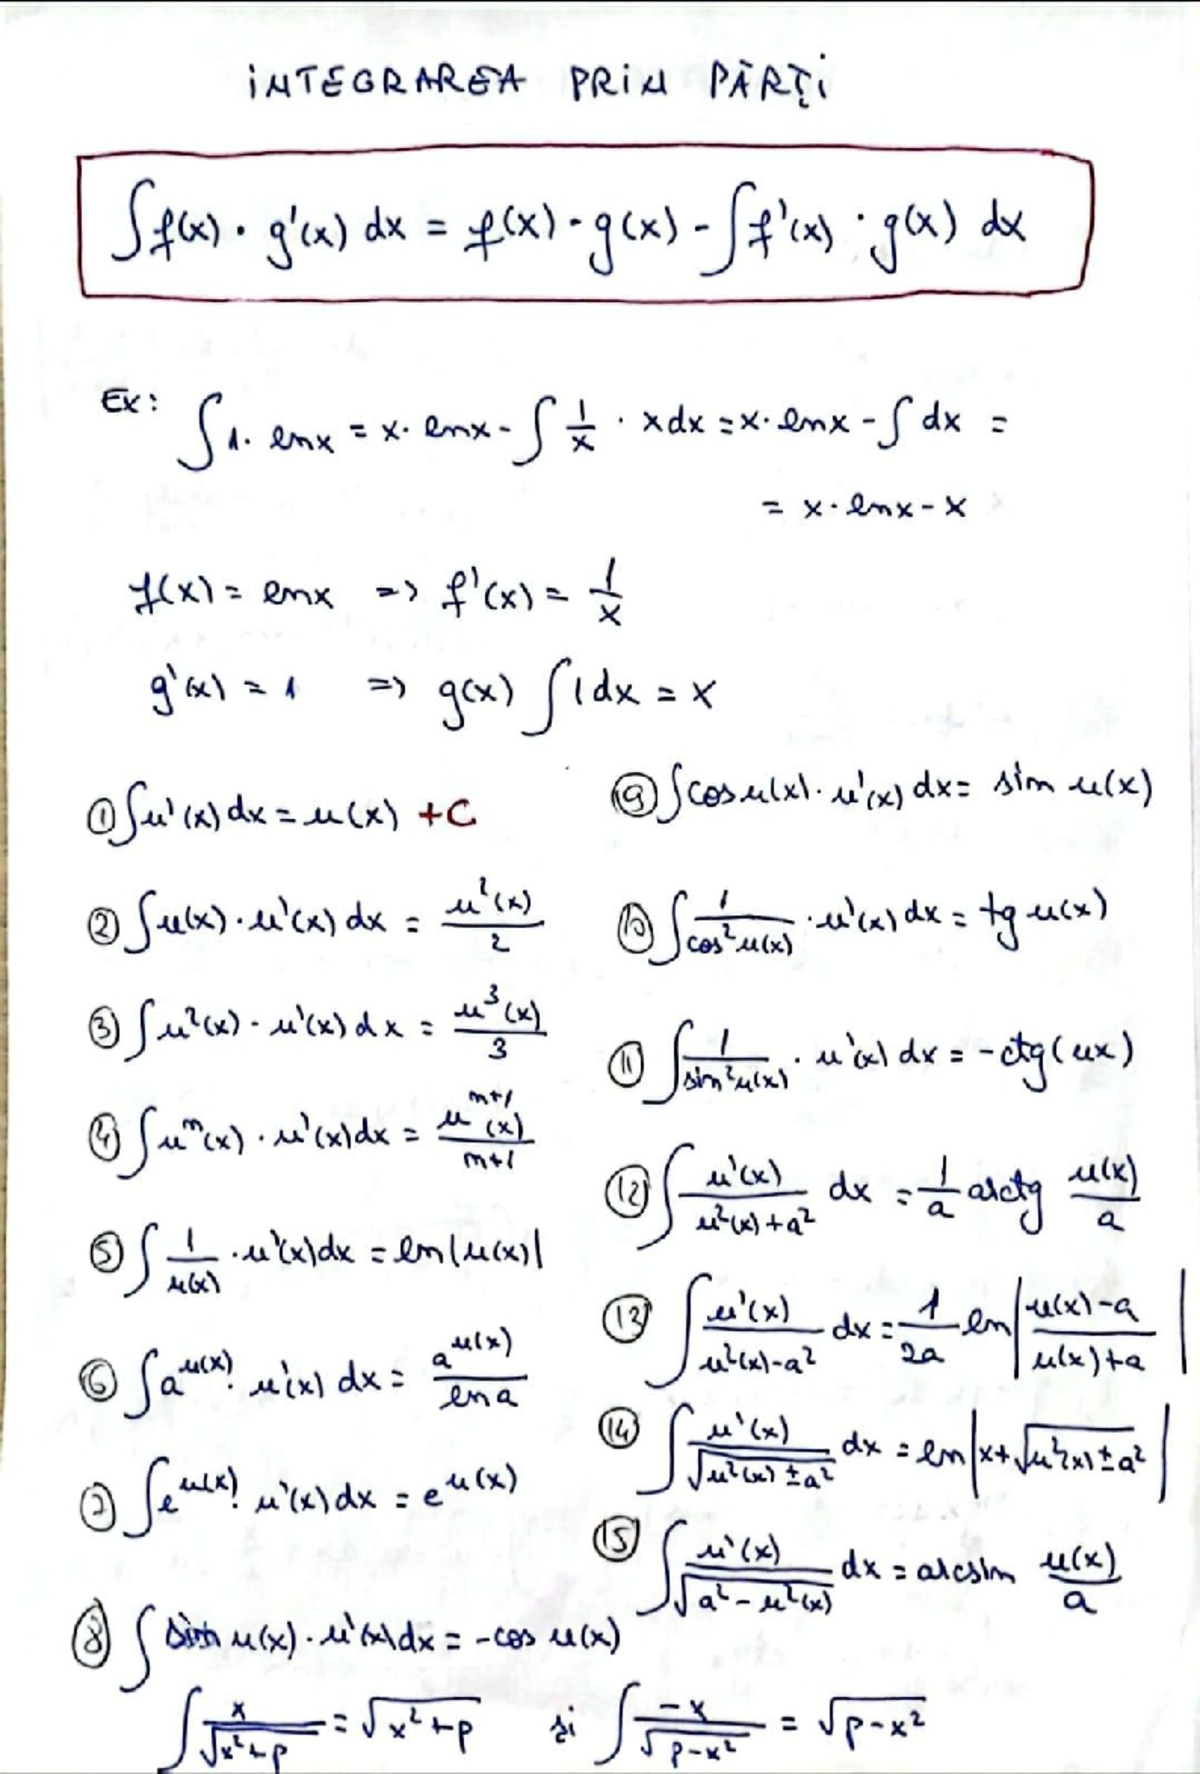 INTEGRAREA PRIN PĂRȚI
∫f(x)·g'(x) dx = f(x)·g(x) - ∫f'(x)·g(x) dx
Ex: ∫1·lnx = x·lnx - ∫1/x · xdx = x·lnx - ∫dx =
= x·lnx - x
f(x) = lnx => f'(x) = 1/x
g'(x) = 1 => g(x) ∫1dx = x
① ∫u'(x)dx = u(x) +C
② ∫u(x)·u'(x)dx = u²(x)/2
③ ∫u²(x)·u'(x)dx = u³(x)/3
④ ∫uⁿ(x)·u'(x)dx = uⁿ⁺¹(x)/n+1
⑤ ∫1/u(x)·u'(x)dx = ln|u(x)|
⑥ ∫a^u(x)·u'(x)dx = a^u(x)/ln a
⑦ ∫e^u(x)·u'(x)dx = e^u(x)
⑧ ∫sin u(x)·u'(x)dx = -cos u(x)
⑨ ∫cos u(x)·u'(x)dx = sin u(x)
⑩ ∫1/cos²u(x)·u'(x)dx = tg u(x)
⑪ ∫1/sin²u(x)·u'(x)dx = -ctg(ux)
⑫ ∫u'(x)/u²(x)+a² dx = 1/a arctg u(x)/a
⑬ ∫u'(x)/u²(x)-a² dx = 1/2a ln|u(x)-a/u(x)+a|
⑭ ∫u'(x)/√u²(x)±a² dx = ln|x+√u²(x)±a²|
⑮ ∫u'(x)/√a²-u²(x) dx = arcsin u(x)/a
∫x/√x²+p = √x²+p și ∫-x/√p-x² = √p-x²